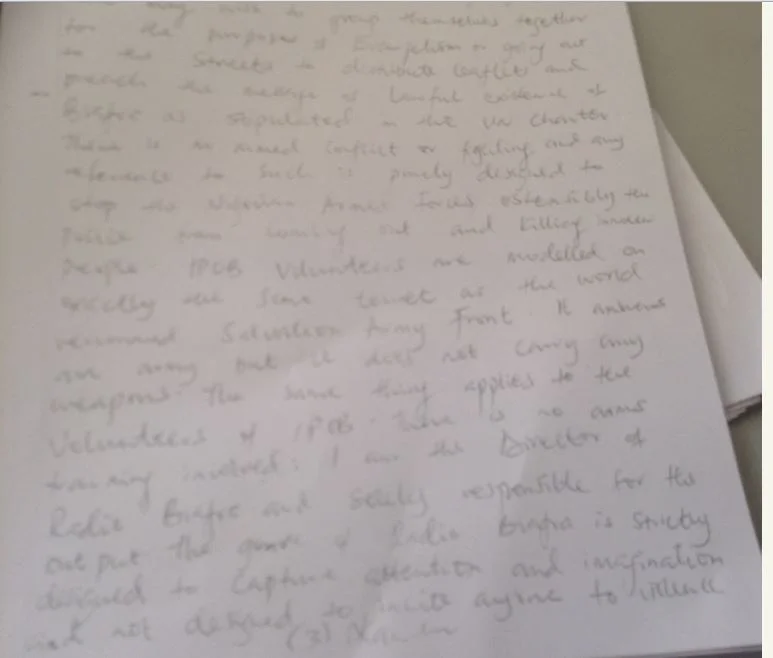 group themselves together
for the purposes of Evangelism or going out
in the streets to distribute leaflets and
preach the message of lawful existence of
Biafra as stipulated in the UN Charter
There is no armed conflict or fighting and any
reference to such is purely designed to
stop the Nigerian Armed forces ostensibly the
Police from coming out and killing
people IPOB Volunteers are modelled on
exactly the same tenet as the world
renowned Salvation Army Front. It
an army but it does not carry any
weapons The same thing applies to the
Volunteers of IPOB. There is no arms
training involved. I am the Director of
Radio Biafra and solely responsible for its
out put The of Radio Biafra is strictly
designed to capture attention and imagination
and not designed to incite anyone to violence
(3)